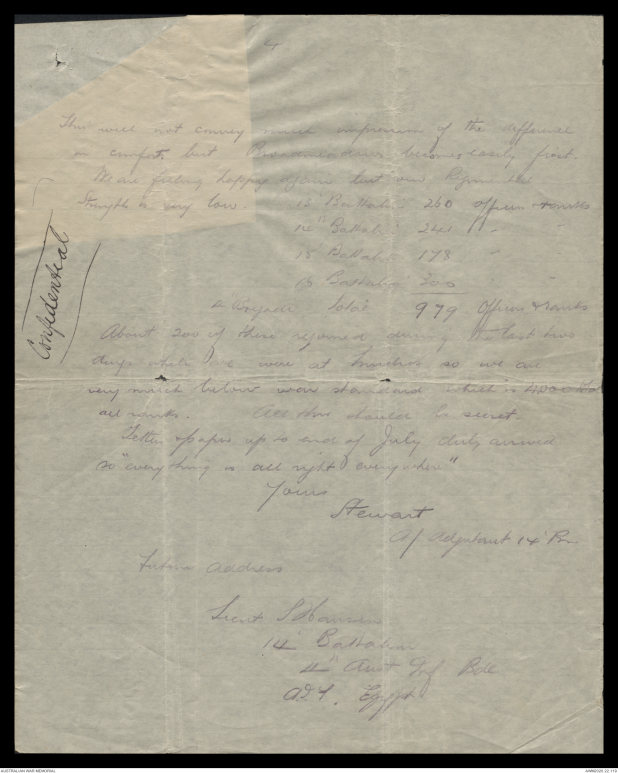 4
This will not convey much impression of the difference
in comfort, but Broadmeadows becomes easily first.
We are feeling happy again but our Regimental
Strength is very low. 13 Battalion 260 officers & ranks
14th Battalion 241 " "
15 Battalion 178 " "
16 Battalion 300
4 Brigade total 979 Officers & ranks
Confidential
About 200 of these rejoined during the last two
days while we were at so we are
very much below war standard which is 4000
all ranks. All this should be secret.
Letters & papers up to end of July duly arrived
so "everything is all right everywhere"
Yours
Stewart
A/ Adjutant 14 Bn
Future address
Lieut S Hansen
14 Battalion
4th Aust Inf Bde
A.I.F. Egypt
AUSTRALIAN WAR MEMORIAL